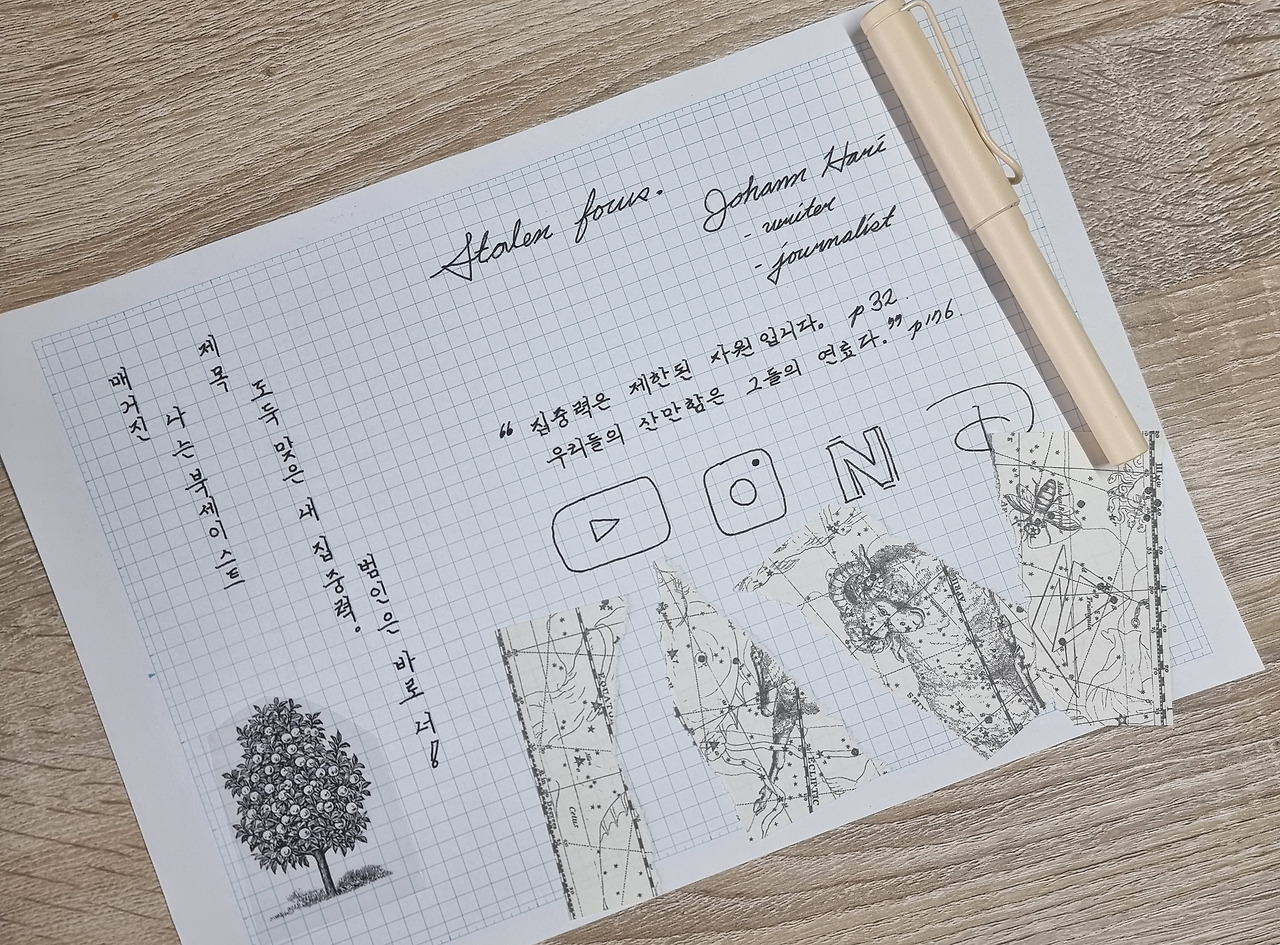 Stolen focus.
Johann Hari
- writer
- journalist
“ 집중력은 제한된 자원입니다. p32.
우리들의 산만함은 그들의 연료다.” p176.
매거진
나는 북세이스트
제목
도둑 맞은 내 집중력.
범인은 바로 너!
N
D
EQUATOR
Cetus
ECLIPTIC